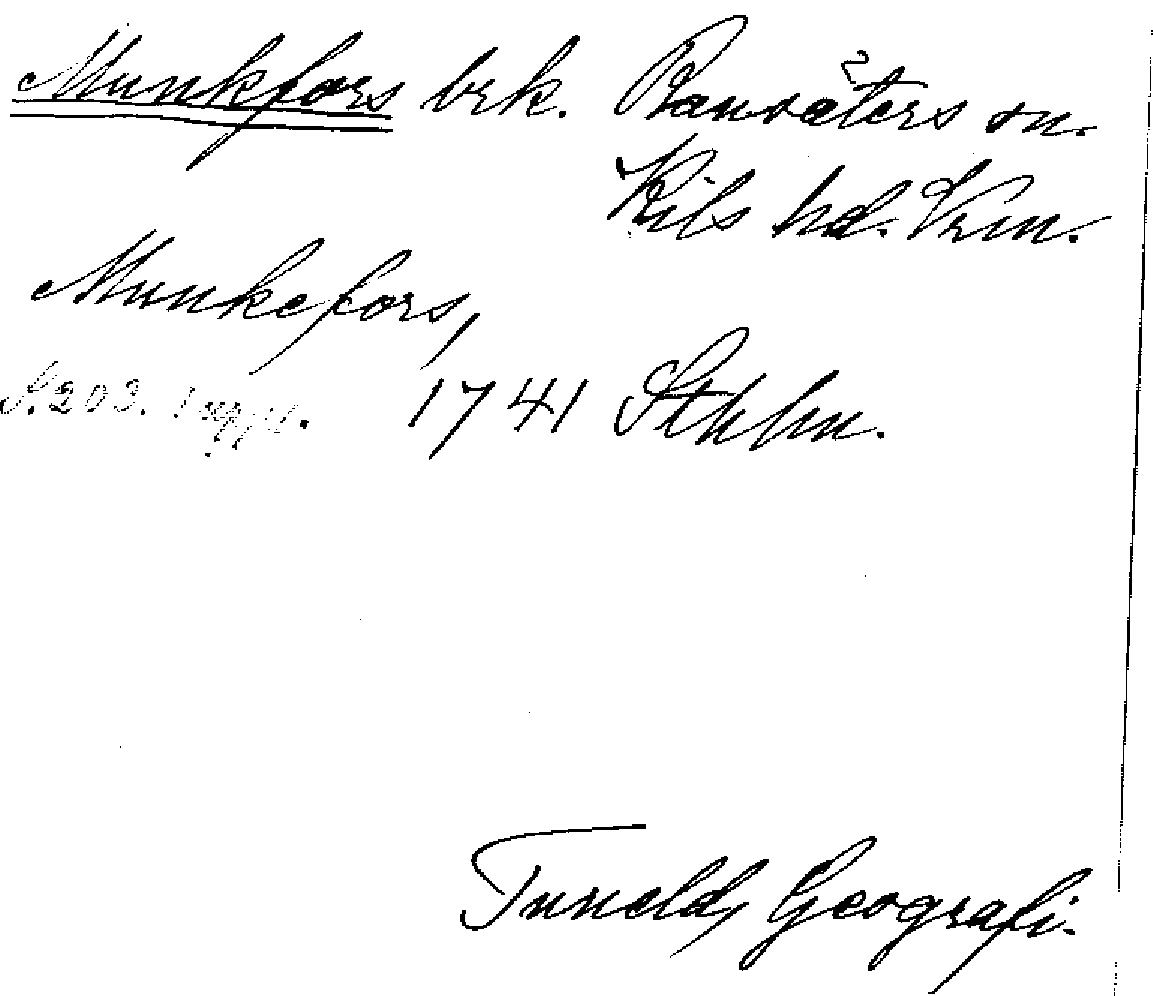 Munkfors brk. Ransäters sn.
Kils hd. Vrm.
Munkefors,
S. 203. 1 uppl. 1741 Sthlm.
Tunelds Geografi.